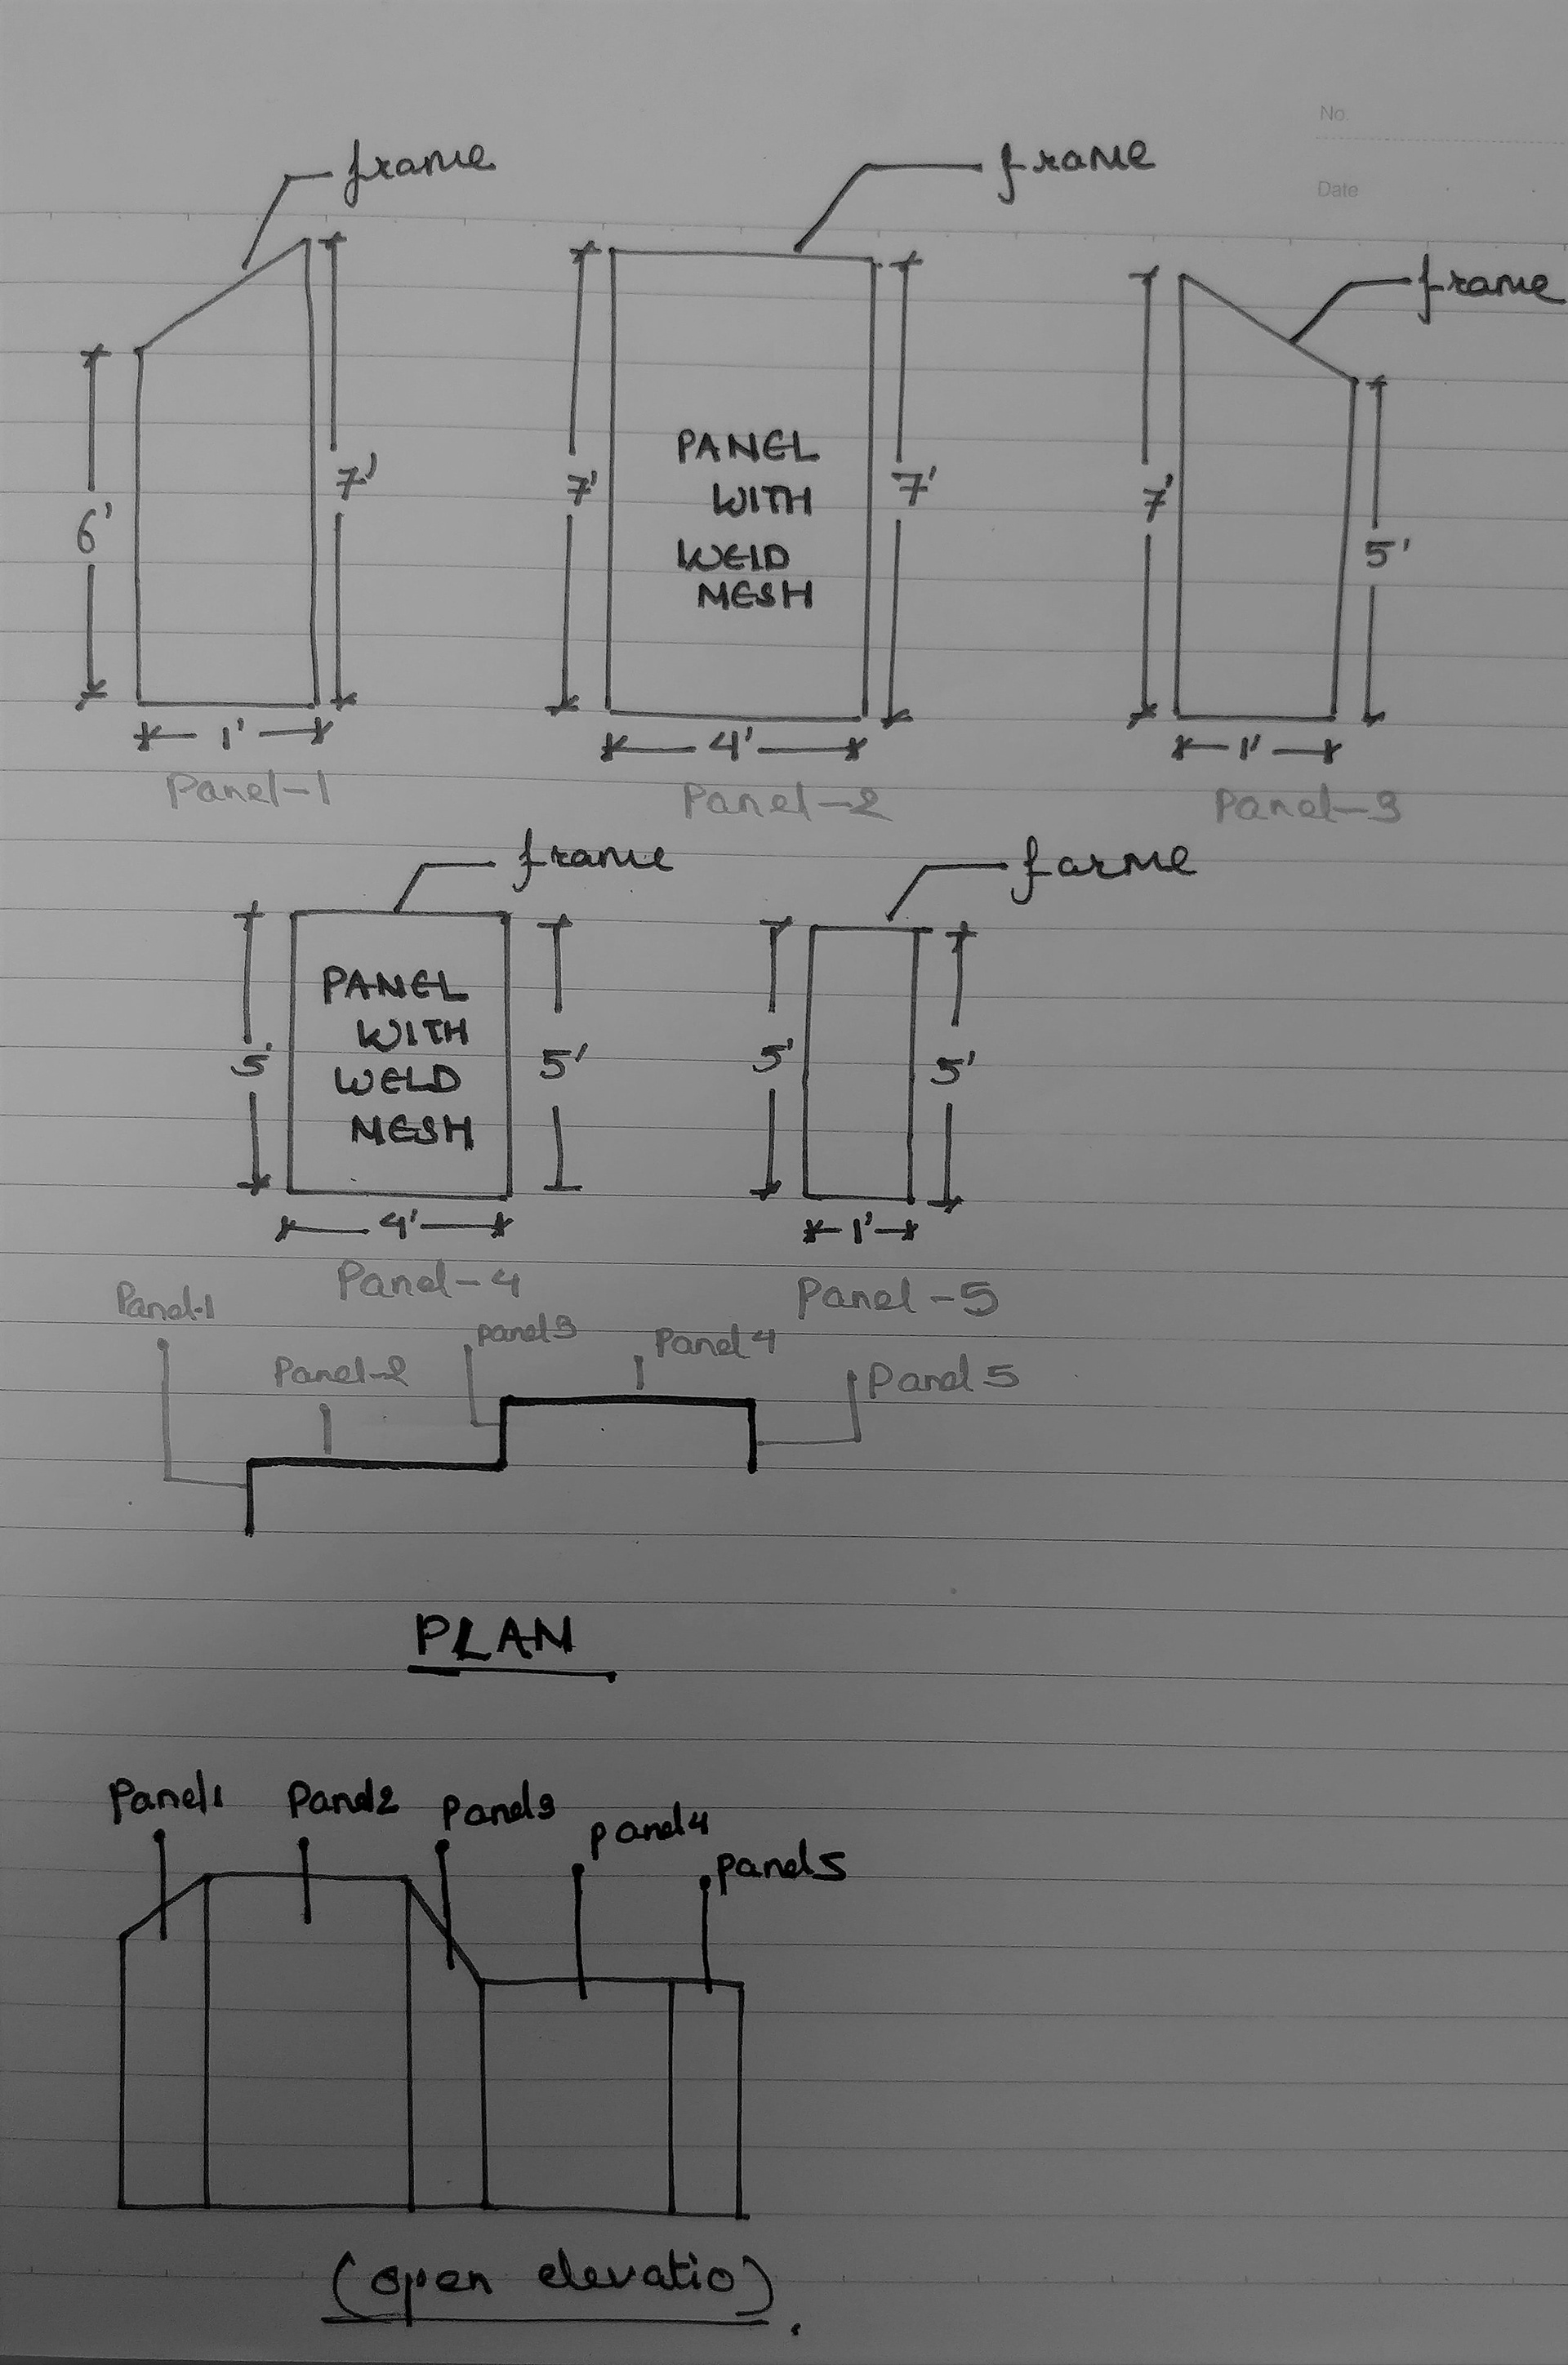 No.
Date
frame
frame
frame
6'
7'
7'
PANEL
WITH
WELD
MESH
7'
7'
5'
1'
4'
1'
Panel-1
Panel-2
Panel-3
frame
farme
5'
PANEL
WITH
WELD
MESH
5'
5'
5'
4'
1'
Panel-4
Panel-5
Panel-1
Panel-2
panel3
Panel 4
Panel 5
PLAN
Panel1
Panel2
Panel3
panel4
panel5
(open elevatio).